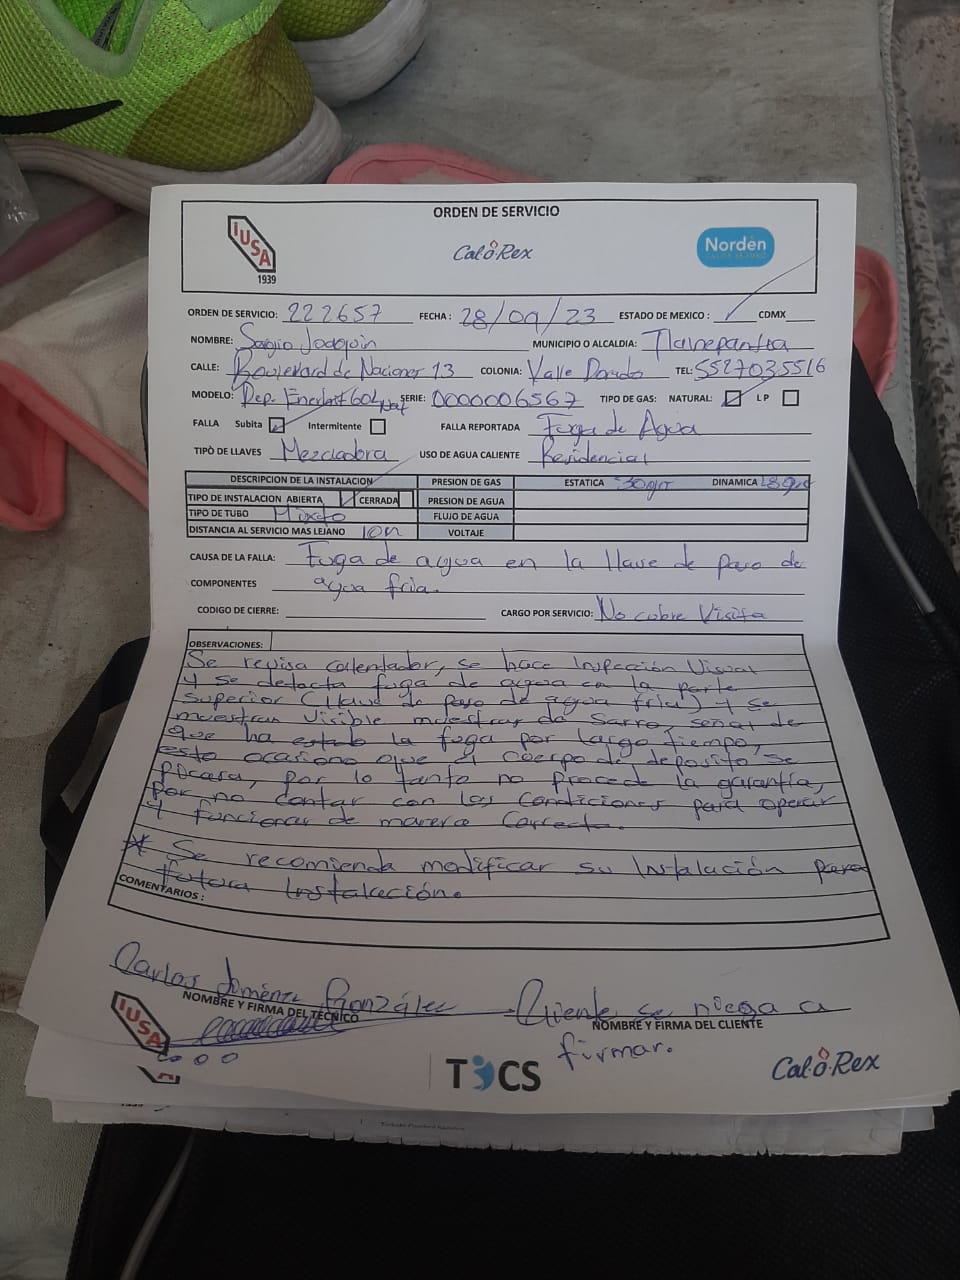 ORDEN DE SERVICIO
IUSA
1939
Cal-o-Rex
Nordën
ORDEN DE SERVICIO: 222657 FECHA: 28/09/23 ESTADO DE MEXICO: CDMX
NOMBRE: Sergio Joaquin MUNICIPIO O ALCALDIA: Tlalnepantla
CALLE: Boulevard de Naciones 13 COLONIA: Valle Dorado TEL: 5527035516
MODELO: Dep. Enerlast 60L Nat SERIE: 0000006567 TIPO DE GAS: NATURAL: LP
FALLA Subita Intermitente FALLA REPORTADA Fuga de Agua
TIPÒ DE LLAVES Mezcladora USO DE AGUA CALIENTE Residencial
DESCRIPCION DE LA INSTALACION PRESION DE GAS ESTATICA 30gr DINAMICA
TIPO DE INSTALACION ABIERTA CERRADA PRESION DE AGUA
TIPO DE TUBO Mixto FLUJO DE AGUA
DISTANCIA AL SERVICIO MAS LEJANO 10m VOLTAJE
CAUSA DE LA FALLA: Fuga de agua en la llave de paso de
COMPONENTES agua fria.
CODIGO DE CIERRE: CARGO POR SERVICIO: No cobre Visita
OBSERVACIONES:
Se revisa calentador, se hace Inspección Visual
y se detecta fuga de agua en la parte
superior (llave de paso de agua fria) y se
muestran visible muestras de Sarro, señal de
que ha estado la fuga por largo tiempo,
esto ocasiono que el cuerpo de deposito se
picara, por lo tanto no procede la garantía,
por no contar con las Condiciones para operar
y funcionar de manera Correcta.
* Se recomienda modificar su Instalación para
futura Instalación.
COMENTARIOS:
Carlos Jiménez González Cliente se niega a
NOMBRE Y FIRMA DEL TÉCNICO NOMBRE Y FIRMA DEL CLIENTE
firmar.
IUSA
TCS
Cal-o-Rex